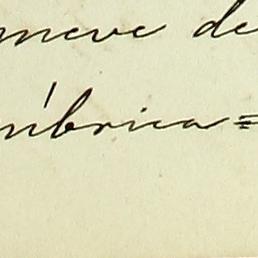 nueve de
rúbrica=